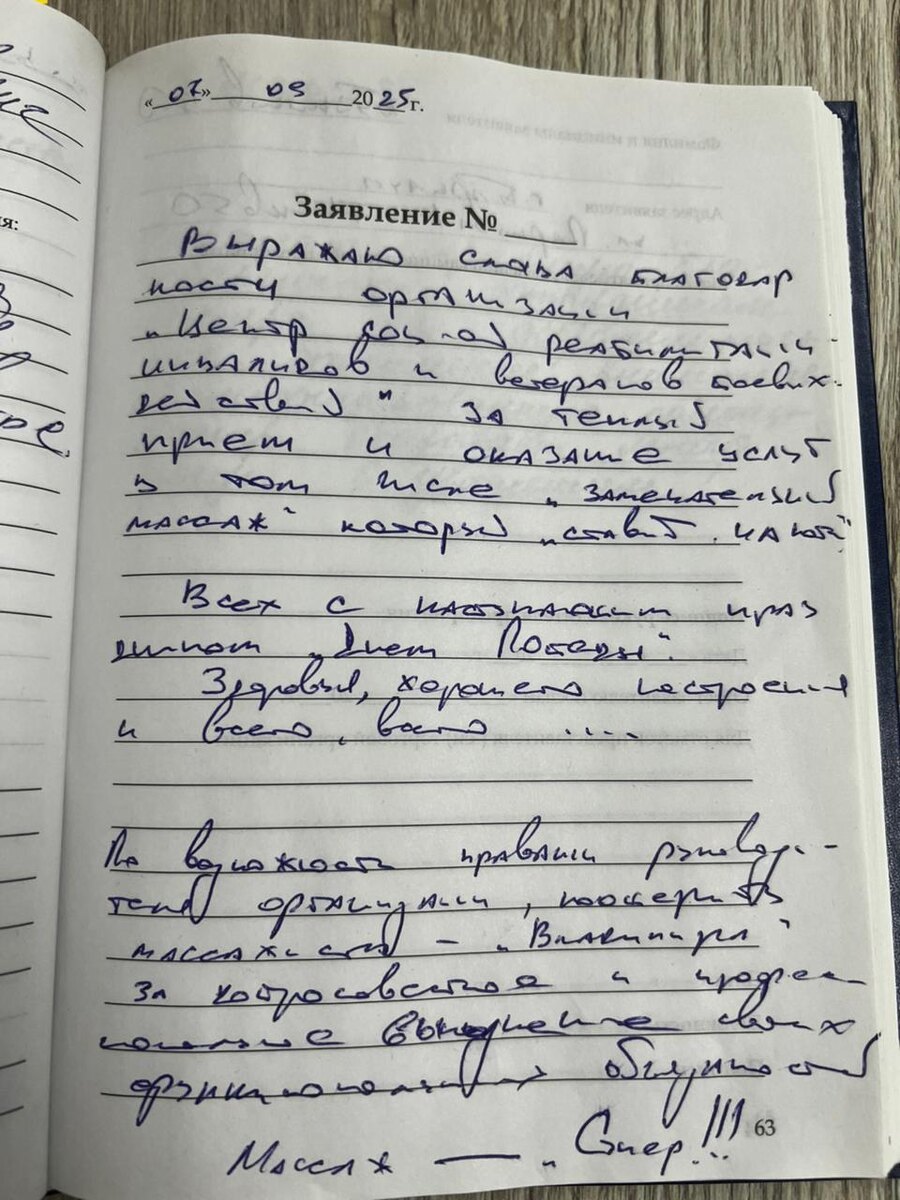 «07» 05 2025г.
Заявление №
Выражаю слова благодар
ности организации
„Центр соц-ой реабилитации
инвалидов и ветеранов боевых
действий" за теплый
прием и оказание услуг
в том числе „замечательный
массаж" который „ставит на ноги"
Всех с наступающим праз
дником „Днем Победы".
Здоровья, хорошего настроения
и всего, всего ....
По возможности правами руководи-
телей организации, поощерить
массажиста – „Владимира"
за добросовестное и профес
иональное выполнение своих
функциональных обязанностей
Массаж — „Супер!!!
63